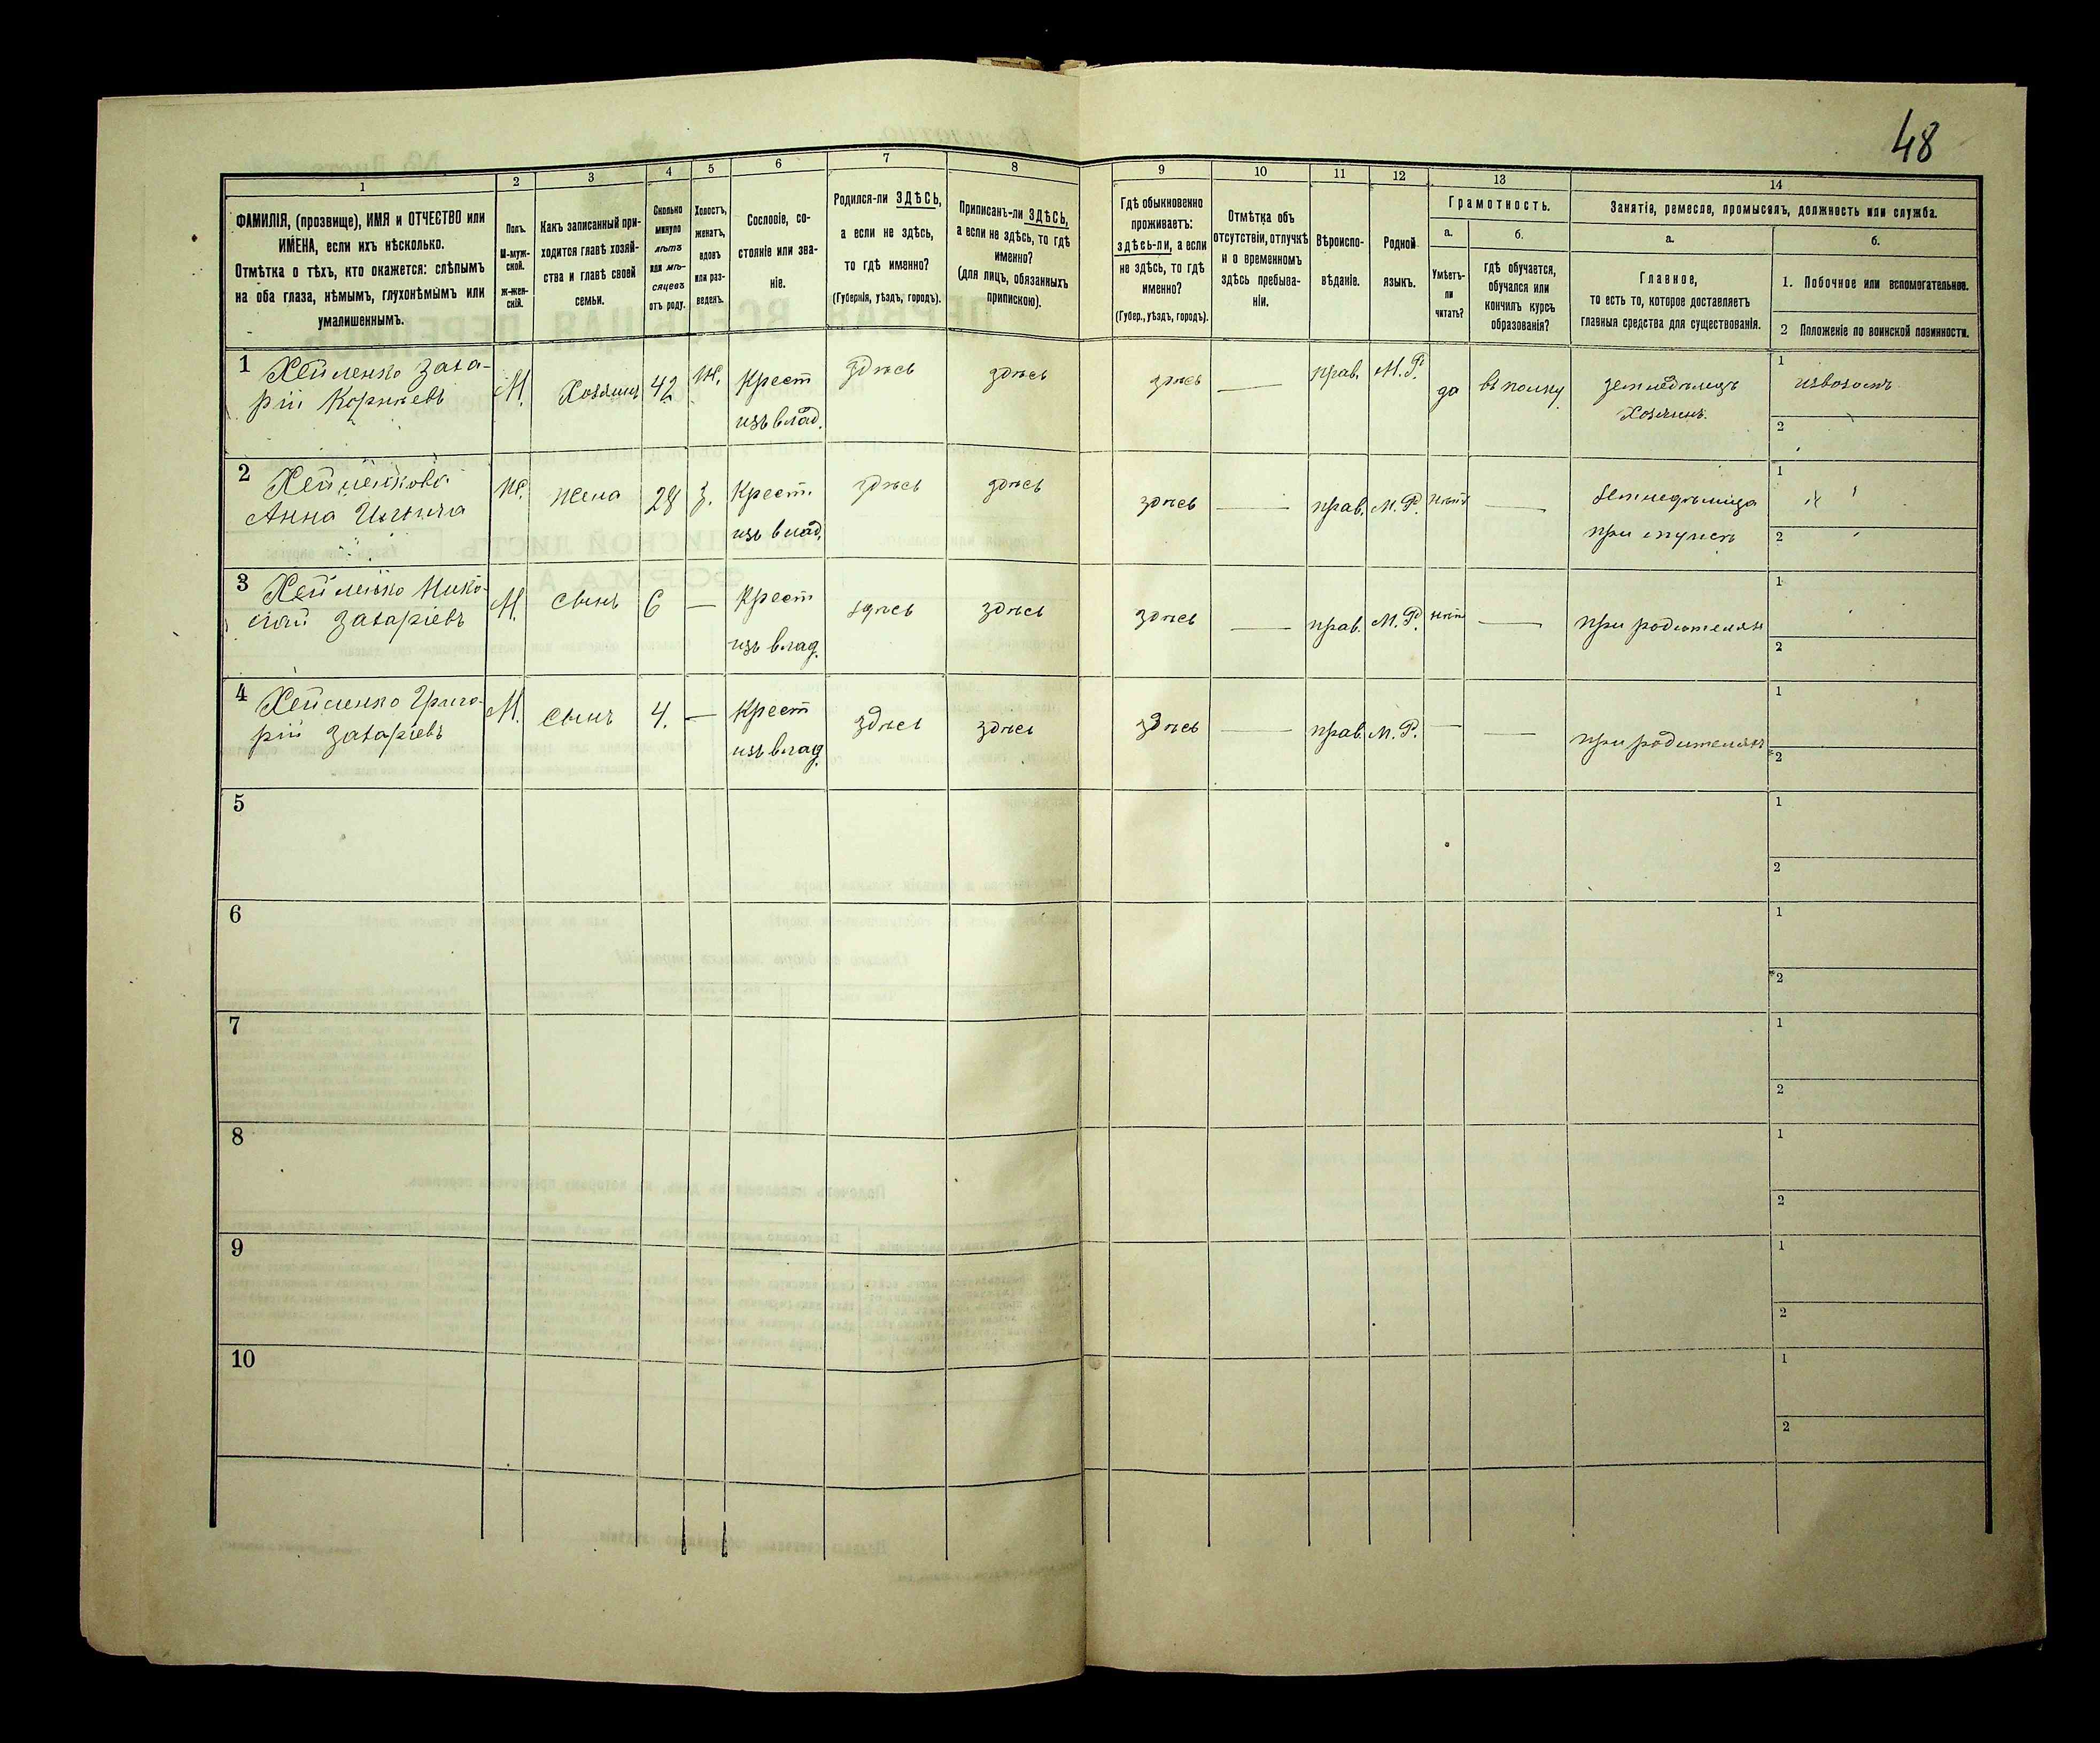 48
1
2
3
4
5
6
7
8
9
10
11
12
13
14
ФАМИЛІЯ, (прозвище), ИМЯ и ОТЧЕСТВО или
ИМЕНА, если ихъ нѣсколько.
Отмѣтка о тѣхъ, кто окажется: слѣпымъ
на оба глаза, нѣмымъ, глухонѣмымъ или
умалишеннымъ.
Полъ.
М-муж-
ской.
Ж-жен-
скій.
Какъ записанный при-
ходится главѣ хозяй-
ства и главѣ своей
семьи.
Сколько
минуло
лѣтъ
или мѣ-
сяцевъ
отъ роду.
Холостъ,
женатъ,
вдовъ
или раз-
веденъ.
Сословіе, со-
стояніе или зва-
ніе.
Родился-ли ЗДѢСЬ,
а если не здѣсь,
то гдѣ именно?
(Губернія, уѣздъ, городъ).
Приписанъ-ли ЗДѢСЬ,
а если не здѣсь, то гдѣ
именно?
(для лицъ, обязанныхъ
припискою).
Гдѣ обыкновенно
проживаетъ:
здѣсь-ли, а если
не здѣсь, то гдѣ
именно?
(Губер., уѣздъ, городъ).
Отмѣтка объ
отсутствіи, отлучкѣ
и о временномъ
здѣсь пребыва-
ніи.
Вѣроиспо-
вѣданіе.
Родной
языкъ.
Грамотность.
а.
Умѣетъ-
ли
читать?
б.
гдѣ обучается,
обучался или
кончилъ курсъ
образованія?
Занятіе, ремесло, промыселъ, должность или служба.
а.
Главное,
то есть то, которое доставляетъ
главныя средства для существованія.
б.
1. Побочное или вспомогательное.
2 Положеніе по воинской повинности.
1 Хейленко Заха-
рій Корнѣевъ
М.
Хозяинъ
42
Ж.
Крест
изъ влад.
здѣсь
здѣсь
здѣсь
—
прав.
М.Р.
да
въ полку
земледѣлецъ
Хозяинъ.
1
извозомъ
2
2
Анна
Ж.
жена
28
З.
Крест.
изъ влад.
здѣсь
здѣсь
здѣсь
—
прав.
М.Р.
нѣтъ
—
при
1
2
3 Хейленко Нико-
лай Захаріевъ
М.
сынъ
6
—
Крест
изъ влад.
здѣсь
здѣсь
здѣсь
—
прав.
М.Р.
нѣтъ
—
при родителяхъ
1
2
4 Хейленко Григо-
рій Захаріевъ
М.
сынъ
4.
—
Крест
изъ влад.
здѣсь
здѣсь
здѣсь
—
прав.
М.Р.
—
—
при родителяхъ
1
2
5
1
2
6
1
2
7
1
2
8
1
2
9
1
2
10
1
2